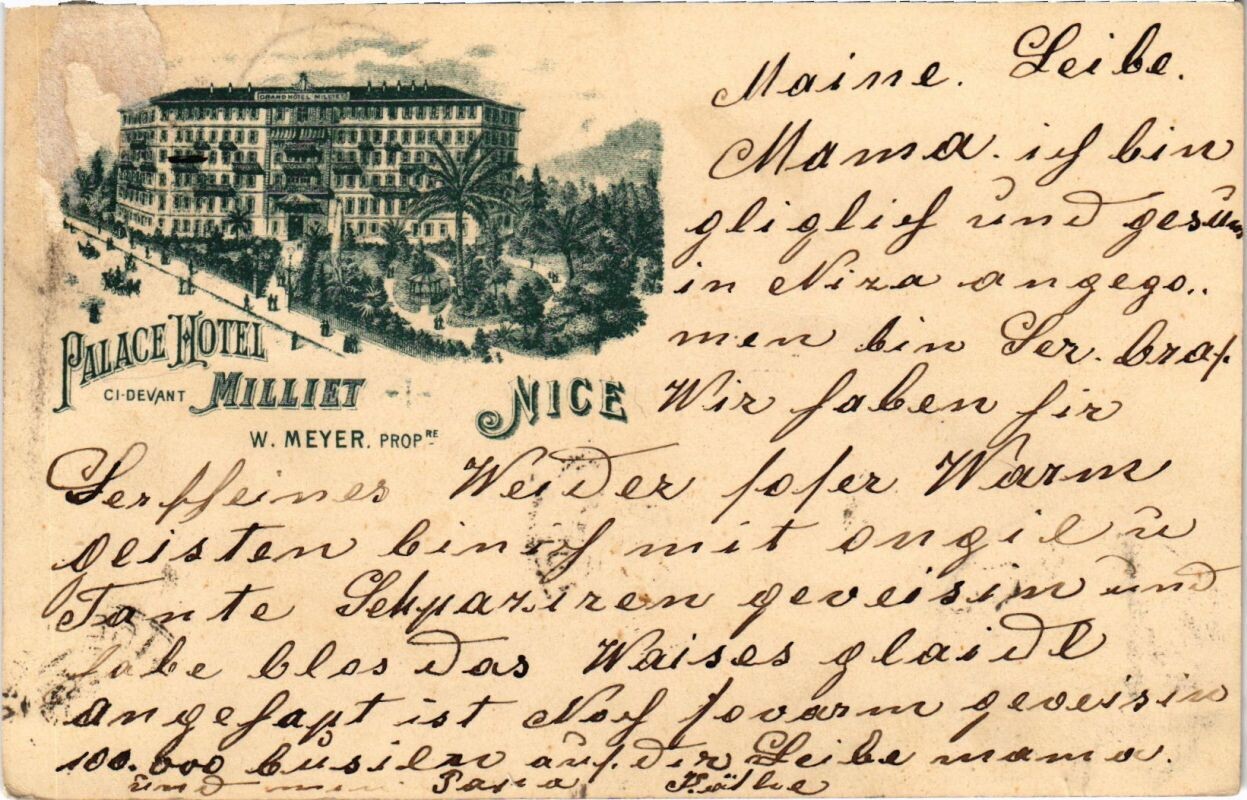 GRAND HOTEL MILLIET
PALACE HOTEL
CI-DEVANT MILLIET
NICE
W. MEYER. PROPRE
Maine. Leibe.
Mama. ich bin
gliglich und gesun
in Niza angego..
men bin Ser. braf.
Wir haben hir
Ser scheines Weider so ser Warm
geisten bin ich mit ongil u
Tante Schpaziren geveisin und
habe blos das Waises glaidl
angehapt ist Noch so varm geveisin
100.000 busiln auf der Leibe mama.
und mein Papa Käthe